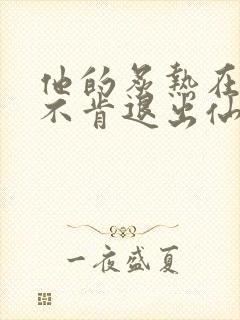 他的炙热在
不肯退出仙
一夜盛夏